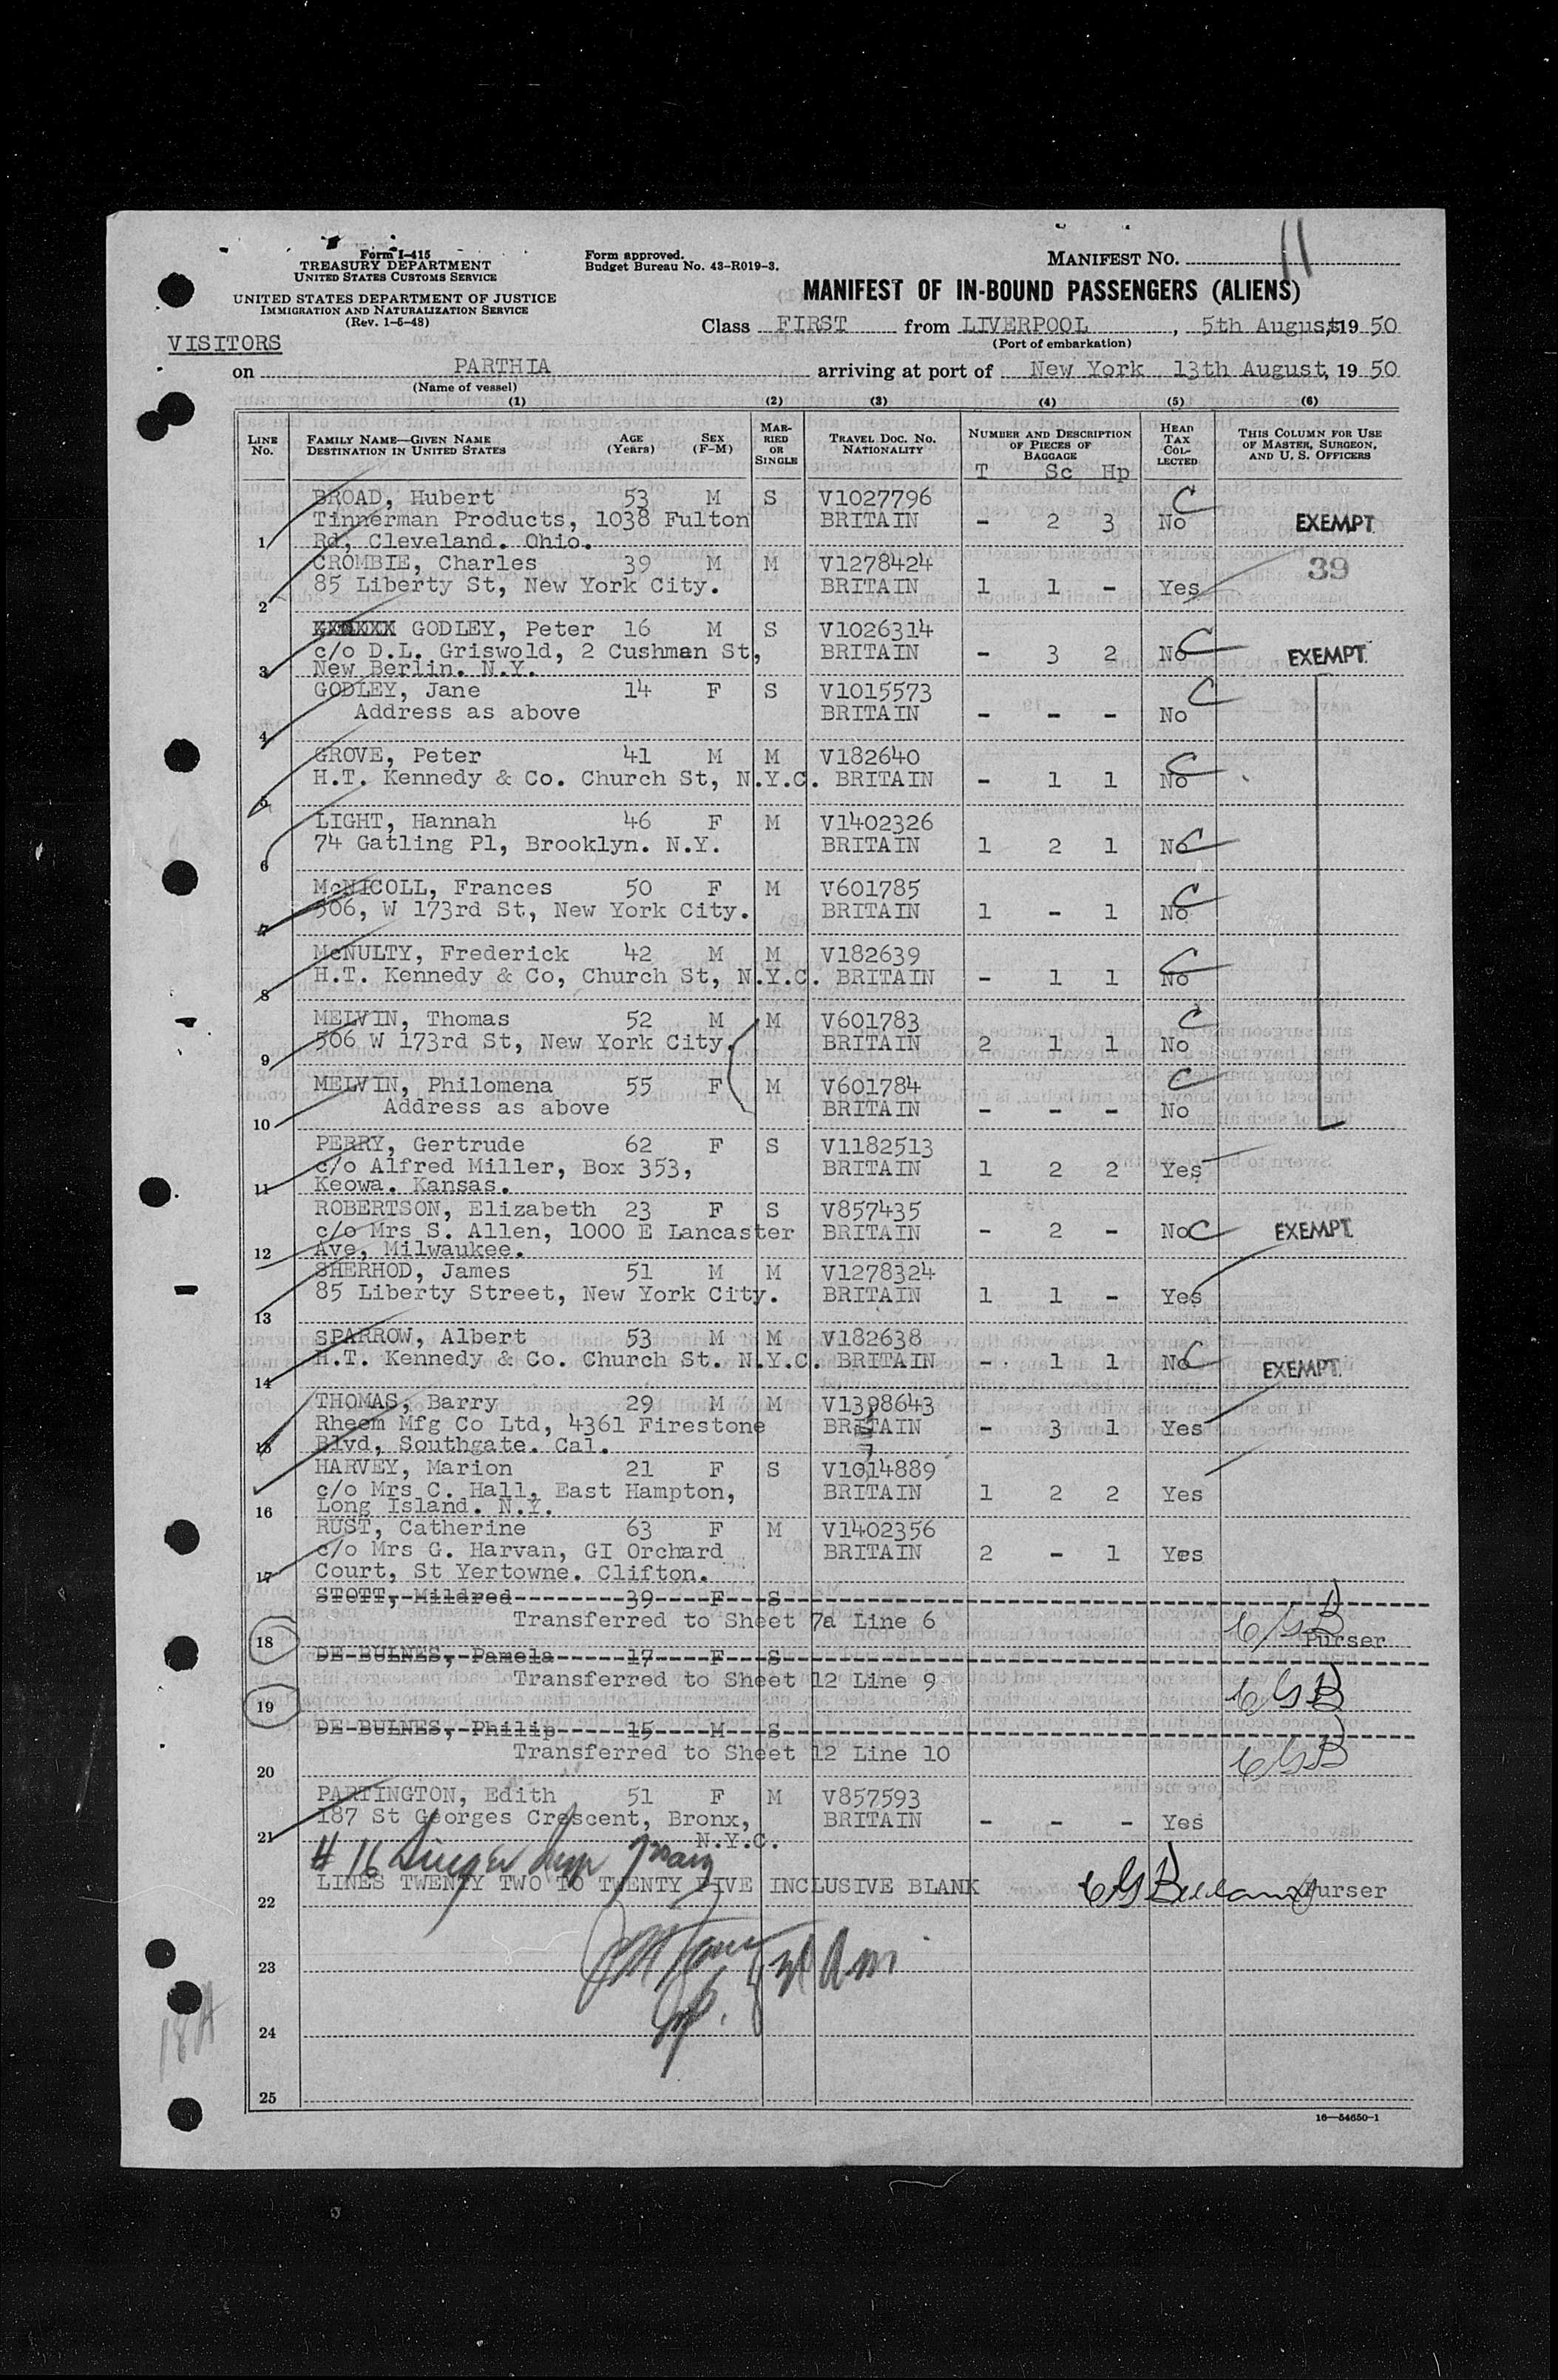 11
Form I-415
TREASURY DEPARTMENT
UNITED STATES CUSTOMS SERVICE
Form approved.
Budget Bureau No. 43-R019-3.
MANIFEST NO.
UNITED STATES DEPARTMENT OF JUSTICE
IMMIGRATION AND NATURALIZATION SERVICE
(Rev. 1-5-48)
MANIFEST OF IN-BOUND PASSENGERS (ALIENS)
Class FIRST from LIVERPOOL, 5th August, 19 50
(Port of embarkation)
VISITORS
on PARTHIA arriving at port of New York 13th August, 19 50
(Name of vessel)
(1) (2) (3) (4) (5) (6)
LINE No. FAMILY NAME—GIVEN NAME DESTINATION IN UNITED STATES AGE (Years) SEX (F-M) MARRIED OR SINGLE TRAVEL DOC. NO. NATIONALITY NUMBER AND DESCRIPTION OF PIECES OF BAGGAGE HEAD TAX COLLECTED THIS COLUMN FOR USE OF MASTER, SURGEON, AND U. S. OFFICERS
T Sc Hp
BROAD, Hubert 53 M S V1027796 C
Tinnerman Products, 1038 Fulton BRITAIN - 2 3 No EXEMPT
1 Rd, Cleveland. Ohio.
CROMBIE, Charles 39 M M V1278424 39
85 Liberty St, New York City. BRITAIN 1 1 - Yes
2
GODLEY, Peter 16 M S V1026314
c/o D.L. Griswold, 2 Cushman St, BRITAIN - 3 2 No C EXEMPT
3 New Berlin. N.Y.
GODLEY, Jane 14 F S V1015573 C
Address as above BRITAIN - - - No
4
GROVE, Peter 41 M M V182640 C
H.T. Kennedy & Co. Church St, N.Y.C. BRITAIN - 1 1 No
5
LIGHT, Hannah 46 F M V1402326
74 Gatling Pl, Brooklyn. N.Y. BRITAIN 1 2 1 No C
6
McNICOLL, Frances 50 F M V601785 C
506, W 173rd St, New York City. BRITAIN 1 - 1 No
7
McNULTY, Frederick 42 M M V182639 C
H.T. Kennedy & Co, Church St, N.Y.C. BRITAIN - 1 1 No
8
MELVIN, Thomas 52 M M V601783 C
506 W 173rd St, New York City. BRITAIN 2 1 1 No
9
MELVIN, Philomena 55 F M V601784 C
Address as above BRITAIN - - - No
10
PERRY, Gertrude 62 F S V1182513
c/o Alfred Miller, Box 353, BRITAIN 1 2 2 Yes
11 Keowa. Kansas.
ROBERTSON, Elizabeth 23 F S V857435
c/o Mrs S. Allen, 1000 E Lancaster BRITAIN - 2 - No C EXEMPT
12 Ave, Milwaukee.
SHERHOD, James 51 M M V1278324
85 Liberty Street, New York City. BRITAIN 1 1 - Yes
13
SPARROW, Albert 53 M M V182638
H.T. Kennedy & Co. Church St. N.Y.C. BRITAIN - 1 1 No C EXEMPT
14
THOMAS, Barry 29 M M V1398643
Rheem Mfg Co Ltd, 4361 Firestone BRITAIN - 3 1 Yes
15 Blvd, Southgate. Cal.
HARVEY, Marion 21 F S V1014889
c/o Mrs C. Hall, East Hampton, BRITAIN 1 2 2 Yes
16 Long Island. N.Y.
RUST, Catherine 63 F M V1402356
c/o Mrs G. Harvan, GI Orchard BRITAIN 2 - 1 Yes
17 Court, St Yertowne. Clifton.
STOTT, Mildred 39 F S
Transferred to Sheet 7a Line 6 CGB
18 Purser
DE BULNES, Pamela 17 F S
Transferred to Sheet 12 Line 9 CGB
19
DE BULNES, Philip 15 M S
Transferred to Sheet 12 Line 10 CGB
20
PARTINGTON, Edith 51 F M V857593
187 St Georges Crescent, Bronx, BRITAIN - - - Yes
21 N.Y.C.
# 16
LINES TWENTY TWO TO TWENTY FIVE INCLUSIVE BLANK Purser
22
23
24
18A
25
16—54650-1